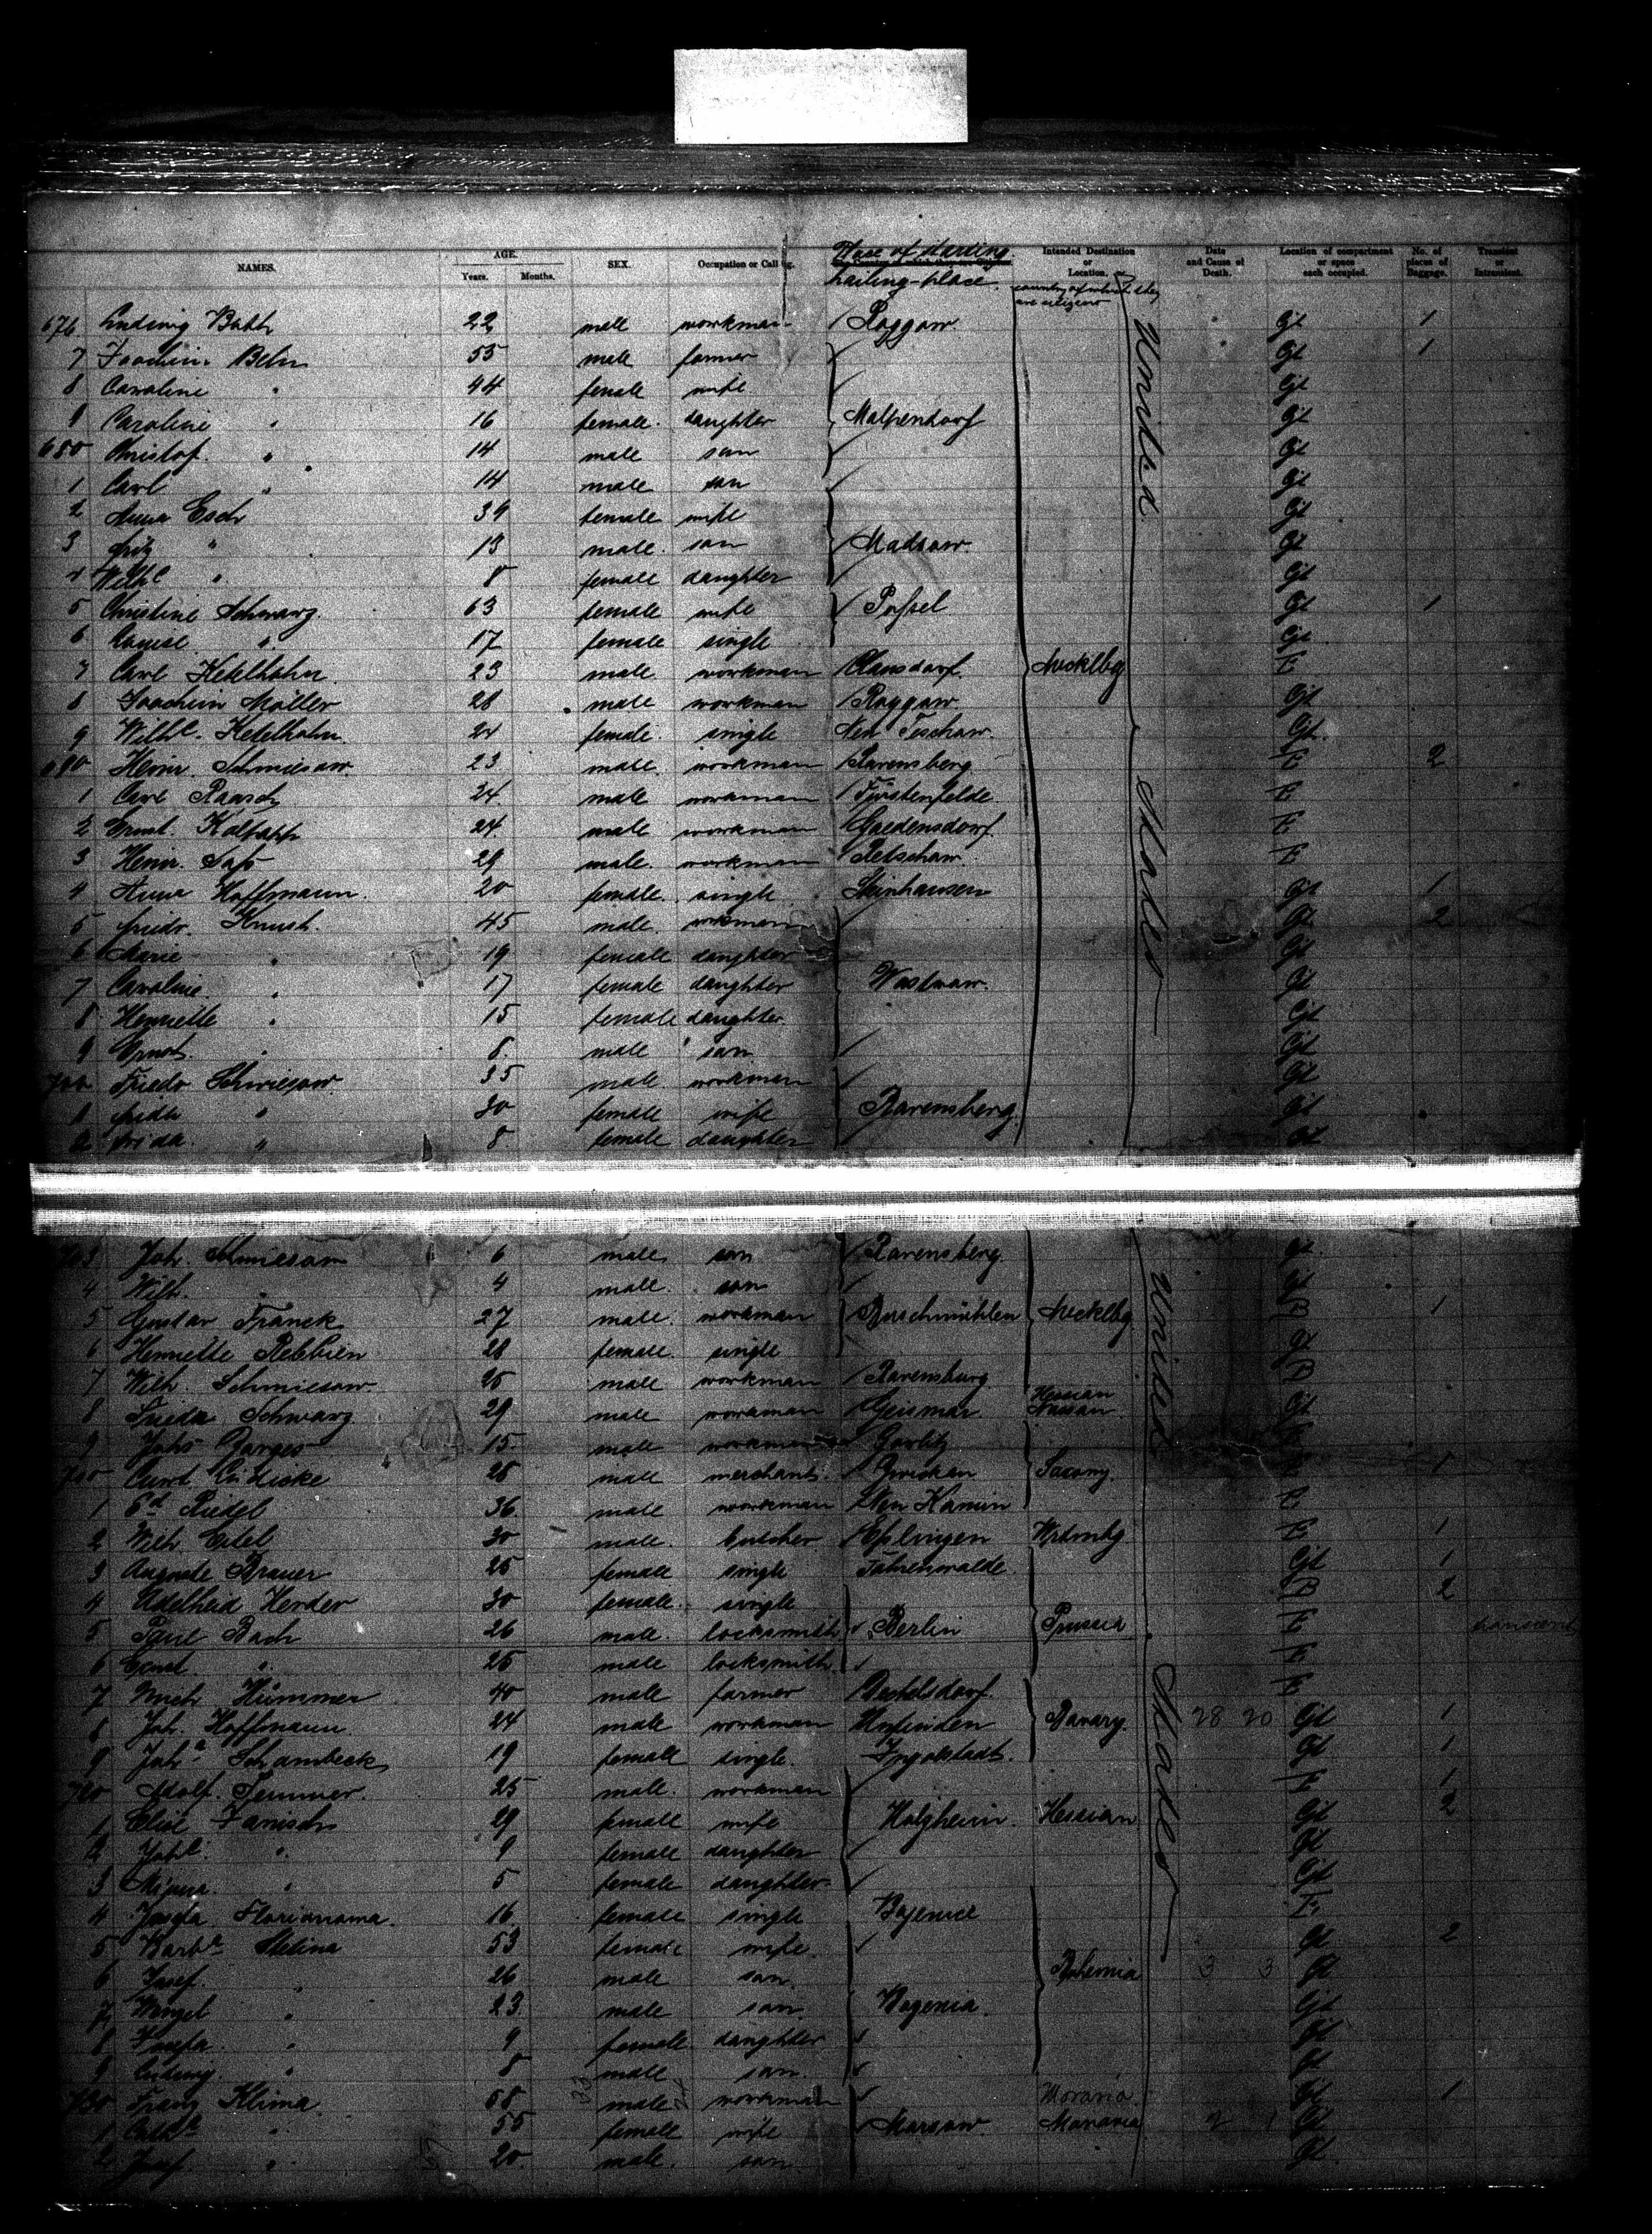 NAMES. AGE. Years. Months. SEX. Occupation or Calling. Place of starting hailing-place. Intended Destination or Location, or country of which they are citizens Date and Cause of Death. Location of compartment or space each occupied. No. of pieces of Baggage. Transient or Intransient.
676 Ludwig Bath 22 male workman Roggow. Gt 1
7 Joachim Behn 55 male farmer Gt 1
8 Caroline " 44 female wife Gt
9 Caroline " 16 female daughter Malpendorf Gt
680 Christof " 14 male son Gt
1 Carl " 14 male son Gt
2 Anna Esch 34 female wife Gt
3 Fritz " 13 male son Gt
4 Wilhe " 8 female daughter Gt
5 Christine Schwarz 63 female wife Passel Gt 1
6 Louise " 17 female single Gt
7 Carl Ketelhohn 23 male workman Clausdorf Mecklbg E
8 Joachim Möller 28 male workman Roggow Gt
9 Wilhe Ketelhohn 24 female single Neu Teschow Gt
690 Heinr. Schmiesow 23 male workman Ravensberg E 2
1 Carl Raasch 24 male workman Fürstenfelde E
2 Ernst 24 male workman Gaedensdorf E
3 Heinr. Sass 29 male workman Retschow E
4 Anna Hoffmann 20 female single Steinhausen Gt 1
5 Friedr. 45 male workman Gt 2
6 Marie " 19 female daughter Gt
7 Caroline " 17 female daughter Gt
8 Henriette " 15 female daughter Gt
9 Ernst " 8 male son Gt
700 Friedr Schmiesow 35 male workman Gt
1 Frida " 30 female wife Ravensberg Gt
2 Frida " 8 female daughter Gt
United States
703 Joh. Schmiesow 6 male son Ravensberg Gt
4 Wilh. " 4 male son Gt
5 Gustav Franck 27 male workman Buschmühlen Mecklbg B 1
6 Henriette Rebbien 28 female single Gt
7 Wilh. Schmiesow 25 male workman Ravensburg B
8 Frieda Schwarz 29 male workman Geismar Hessian Nassau Gt
9 Johs Garges 15 male workman Gorlitz E
710 Curt Lüdicke 28 male merchant Zwickau Saxony. E 1
1 Ed Riedel 36 male workman Neu Kamin E
2 Wilh. Eitel 30 male butcher Esslingen Wrtmbg E 1
3 Auguste Brauer 25 female single Fahrenwalde Gt 1
4 Adelheid Herder 30 female single B 2
5 Paul Bach 26 male locksmith Berlin Prussia E transient
6 Ernst " 25 male locksmith E
7 Mich Hümmer 40 male farmer E
8 Joh. Hoffmann 24 male workman Bavary. 28 20 Gt 1
9 Joha Schambeck 19 female single Ingolstadt. Gt 1
720 Adolf Temmer 25 male workman E 1
1 Elise Janisch 29 female wife Holzheim Hessian Gt 2
2 Johe " 9 female daughter Gt
3 " 5 female daughter Gt
4 Josefa Florianoma 16 female single Bozenice E
5 Barba Stetina 53 female wife Gt 2
6 Josef " 26 male son Bohemia 3 3 Gt
7 Wenzel " 23 male son Gt
8 Josefa " 9 female daughter Gt
9 Ludwig " 8 male son Gt
730 Franz Klima 58 male workman Moravia Gt 1
1 Catha " 55 female wife Warsaw Moravia 2 1 Gt
2 Josef " 20 male son Gt
United States